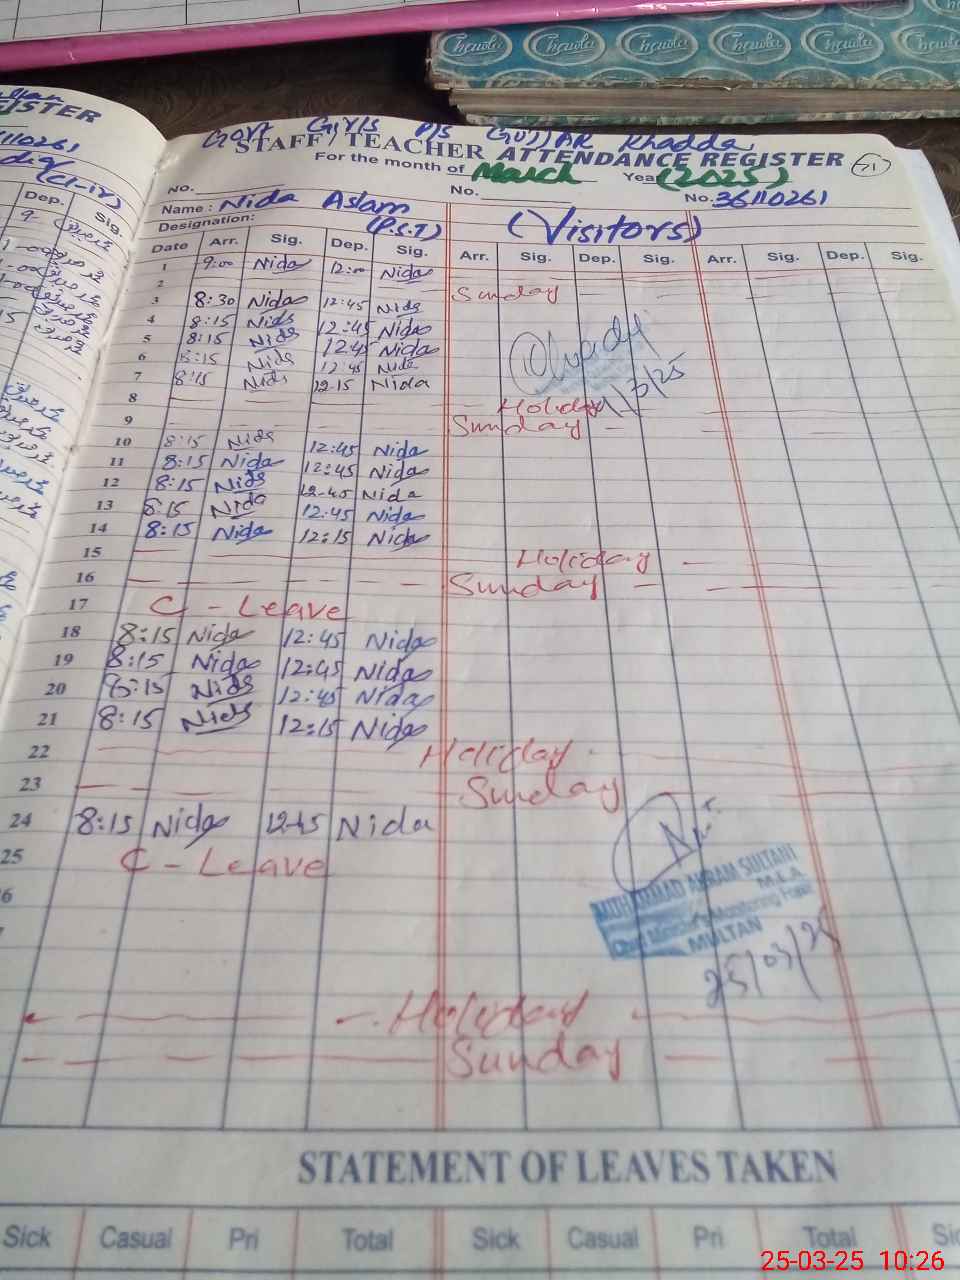 Chawla Chawla Chawla Chawla Chawla
Govt Girls P/S GUJJAR Khadda
STAFF / TEACHER ATTENDANCE REGISTER
For the month of March Year (2025)
71
No. No. No. 36110261
Name : Nida Aslam
Designation: (P.S.T) (Visitors)
Date Arr. Sig. Dep. Sig. Arr. Sig. Dep. Sig. Arr. Sig. Dep. Sig.
1 9:00 Nida 12:00 Nida
2 Sunday
3 8:30 Nida 12:45 Nida
4 8:15 Nida 12:45 Nida
5 8:15 Nida 12:45 Nida
6 8:15 Nida 12:45 Nida
7 8:15 Nida 12:15 Nida
8 Holiday
9 Sunday
10 8:15 Nida 12:45 Nida
11 8:15 Nida 12:45 Nida
12 8:15 Nida 12:45 Nida
13 8:15 Nida 12:45 Nida
14 8:15 Nida 12:15 Nida
15 Holiday
16 Sunday
17 C - Leave
18 8:15 Nida 12:45 Nida
19 8:15 Nida 12:45 Nida
20 8:15 Nida 12:45 Nida
21 8:15 Nida 12:15 Nida
22 Holiday
23 Sunday
24 8:15 Nida 12:45 Nida
25 C - Leave
MUHAMMAD AKRAM SULTANI
M.E.A
Chief Minister's Monitoring Force
MULTAN
25/03/25
Holiday
Sunday
STATEMENT OF LEAVES TAKEN
Sick Casual Pri Total Sick Casual Pri Total
25-03-25 10:26
REGISTER
Dep. Sig.